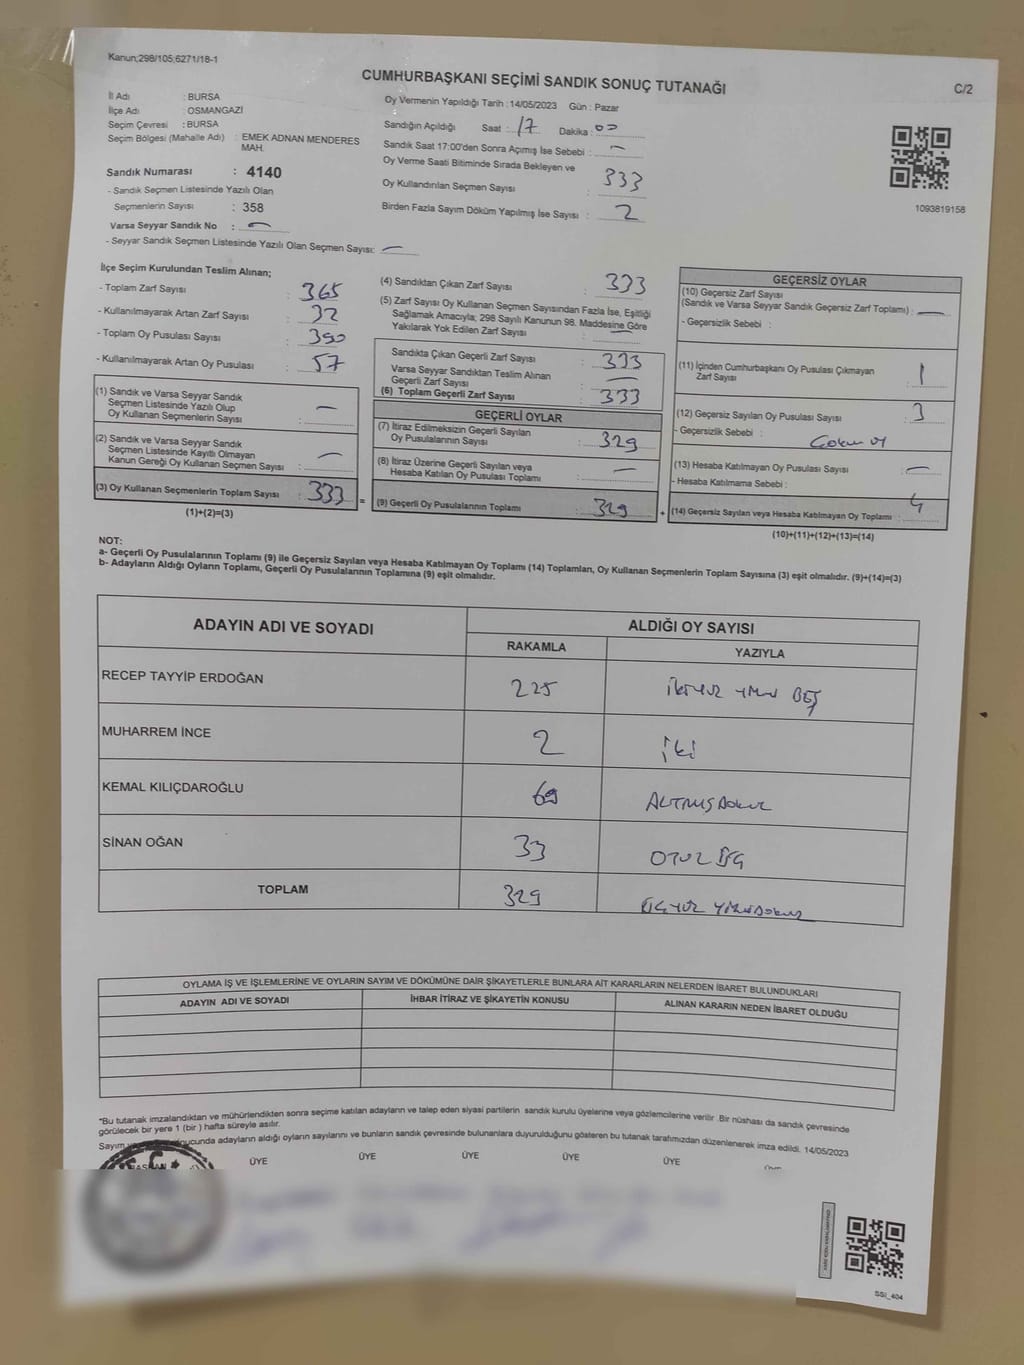 Kanun;298/105;6271/18-1
CUMHURBAŞKANI SEÇİMİ SANDIK SONUÇ TUTANAĞI
C/2
İl Adı : BURSA
İlçe Adı : OSMANGAZİ
Seçim Çevresi : BURSA
Seçim Bölgesi (Mahalle Adı) : EMEK ADNAN MENDERES
MAH.
Sandık Numarası : 4140
- Sandık Seçmen Listesinde Yazılı Olan
Seçmenlerin Sayısı : 358
Varsa Seyyar Sandık No : —
- Seyyar Sandık Seçmen Listesinde Yazılı Olan Seçmen Sayısı: —
Oy Vermenin Yapıldığı Tarih : 14/05/2023 Gün : Pazar
Sandığın Açıldığı Saat : 17 Dakika : 00
Sandık Saat 17:00'den Sonra Açımış İse Sebebi : —
Oy Verme Saati Bitiminde Sırada Bekleyen ve
Oy Kullandırılan Seçmen Sayısı : 333
Birden Fazla Sayım Döküm Yapılmış İse Sayısı : 2
1093819158
İlçe Seçim Kurulundan Teslim Alınan;
- Toplam Zarf Sayısı : 365
- Kullanılmayarak Artan Zarf Sayısı : 32
- Toplam Oy Pusulası Sayısı : 390
- Kullanılmayarak Artan Oy Pusulası : 57
(1) Sandık ve Varsa Seyyar Sandık
Seçmen Listesinde Yazılı Olup
Oy Kullanan Seçmenlerin Sayısı : —
(2) Sandık ve Varsa Seyyar Sandık
Seçmen Listesinde Kayıtlı Olmayan
Kanun Gereği Oy Kullanan Seçmen Sayısı : —
(3) Oy Kullanan Seçmenlerin Toplam Sayısı : 333
(1)+(2)=(3)
=
(4) Sandıktan Çıkan Zarf Sayısı : 333
(5) Zarf Sayısı Oy Kullanan Seçmen Sayısından Fazla İse, Eşitliği
Sağlamak Amacıyla; 298 Sayılı Kanunun 98. Maddesine Göre
Yakılarak Yok Edilen Zarf Sayısı : —
Sandıkta Çıkan Geçerli Zarf Sayısı : 333
Varsa Seyyar Sandıktan Teslim Alınan
Geçerli Zarf Sayısı : —
(6) Toplam Geçerli Zarf Sayısı : 333
GEÇERLİ OYLAR
(7) İtiraz Edilmeksizin Geçerli Sayılan
Oy Pusulalarının Sayısı : 329
(8) İtiraz Üzerine Geçerli Sayılan veya
Hesaba Katılan Oy Pusulası Toplamı : —
(9) Geçerli Oy Pusulalarının Toplamı : 329
+
GEÇERSİZ OYLAR
(10) Geçersiz Zarf Sayısı
(Sandık ve Varsa Seyyar Sandık Geçersiz Zarf Toplamı) : —
- Geçersizlik Sebebi :
(11) İçinden Cumhurbaşkanı Oy Pusulası Çıkmayan
Zarf Sayısı : 1
(12) Geçersiz Sayılan Oy Pusulası Sayısı : 3
- Geçersizlik Sebebi :
(13) Hesaba Katılmayan Oy Pusulası Sayısı : —
- Hesaba Katılmama Sebebi :
(14) Geçersiz Sayılan veya Hesaba Katılmayan Oy Toplamı : 4
(10)+(11)+(12)+(13)=(14)
NOT:
a- Geçerli Oy Pusulalarının Toplamı (9) ile Geçersiz Sayılan veya Hesaba Katılmayan Oy Toplamı (14) Toplamları, Oy Kullanan Seçmenlerin Toplam Sayısına (3) eşit olmalıdır. (9)+(14)=(3)
b- Adayların Aldığı Oyların Toplamı, Geçerli Oy Pusulalarının Toplamına (9) eşit olmalıdır.
ADAYIN ADI VE SOYADI
ALDIĞI OY SAYISI
RAKAMLA YAZIYLA
RECEP TAYYİP ERDOĞAN 225 İKİYÜZ YİRMİ BEŞ
MUHARREM İNCE 2 İki
KEMAL KILIÇDAROĞLU 69 ALTMIŞDOKUZ
SİNAN OĞAN 33 OTUZ ÜÇ
TOPLAM 329 ÜÇYÜZ YİRMİDOKUZ
OYLAMA İŞ VE İŞLEMLERİNE VE OYLARIN SAYIM VE DÖKÜMÜNE DAİR ŞİKAYETLERLE BUNLARA AİT KARARLARIN NELERDEN İBARET BULUNDUKLARI
ADAYIN ADI VE SOYADI İHBAR İTİRAZ VE ŞİKAYETİN KONUSU ALINAN KARARIN NEDEN İBARET OLDUĞU
*Bu tutanak imzalandıktan ve mühürlendikten sonra seçime katılan adayların ve talep eden siyasi partilerin sandık kurulu üyelerine veya gözlemcilerine verilir .Bir nüshası da sandık çevresinde
görülecek bir yere 1 (bir ) hafta süreyle asılır.
Sayım ucunda adayların aldığı oyların sayılarını ve bunların sandık çevresinde bulunanlara duyurulduğunu gösteren bu tutanak tarafımızdan düzenlenerek imza edildi. 14/05/2023
ÜYE ÜYE ÜYE ÜYE ÜYE
SSI_404